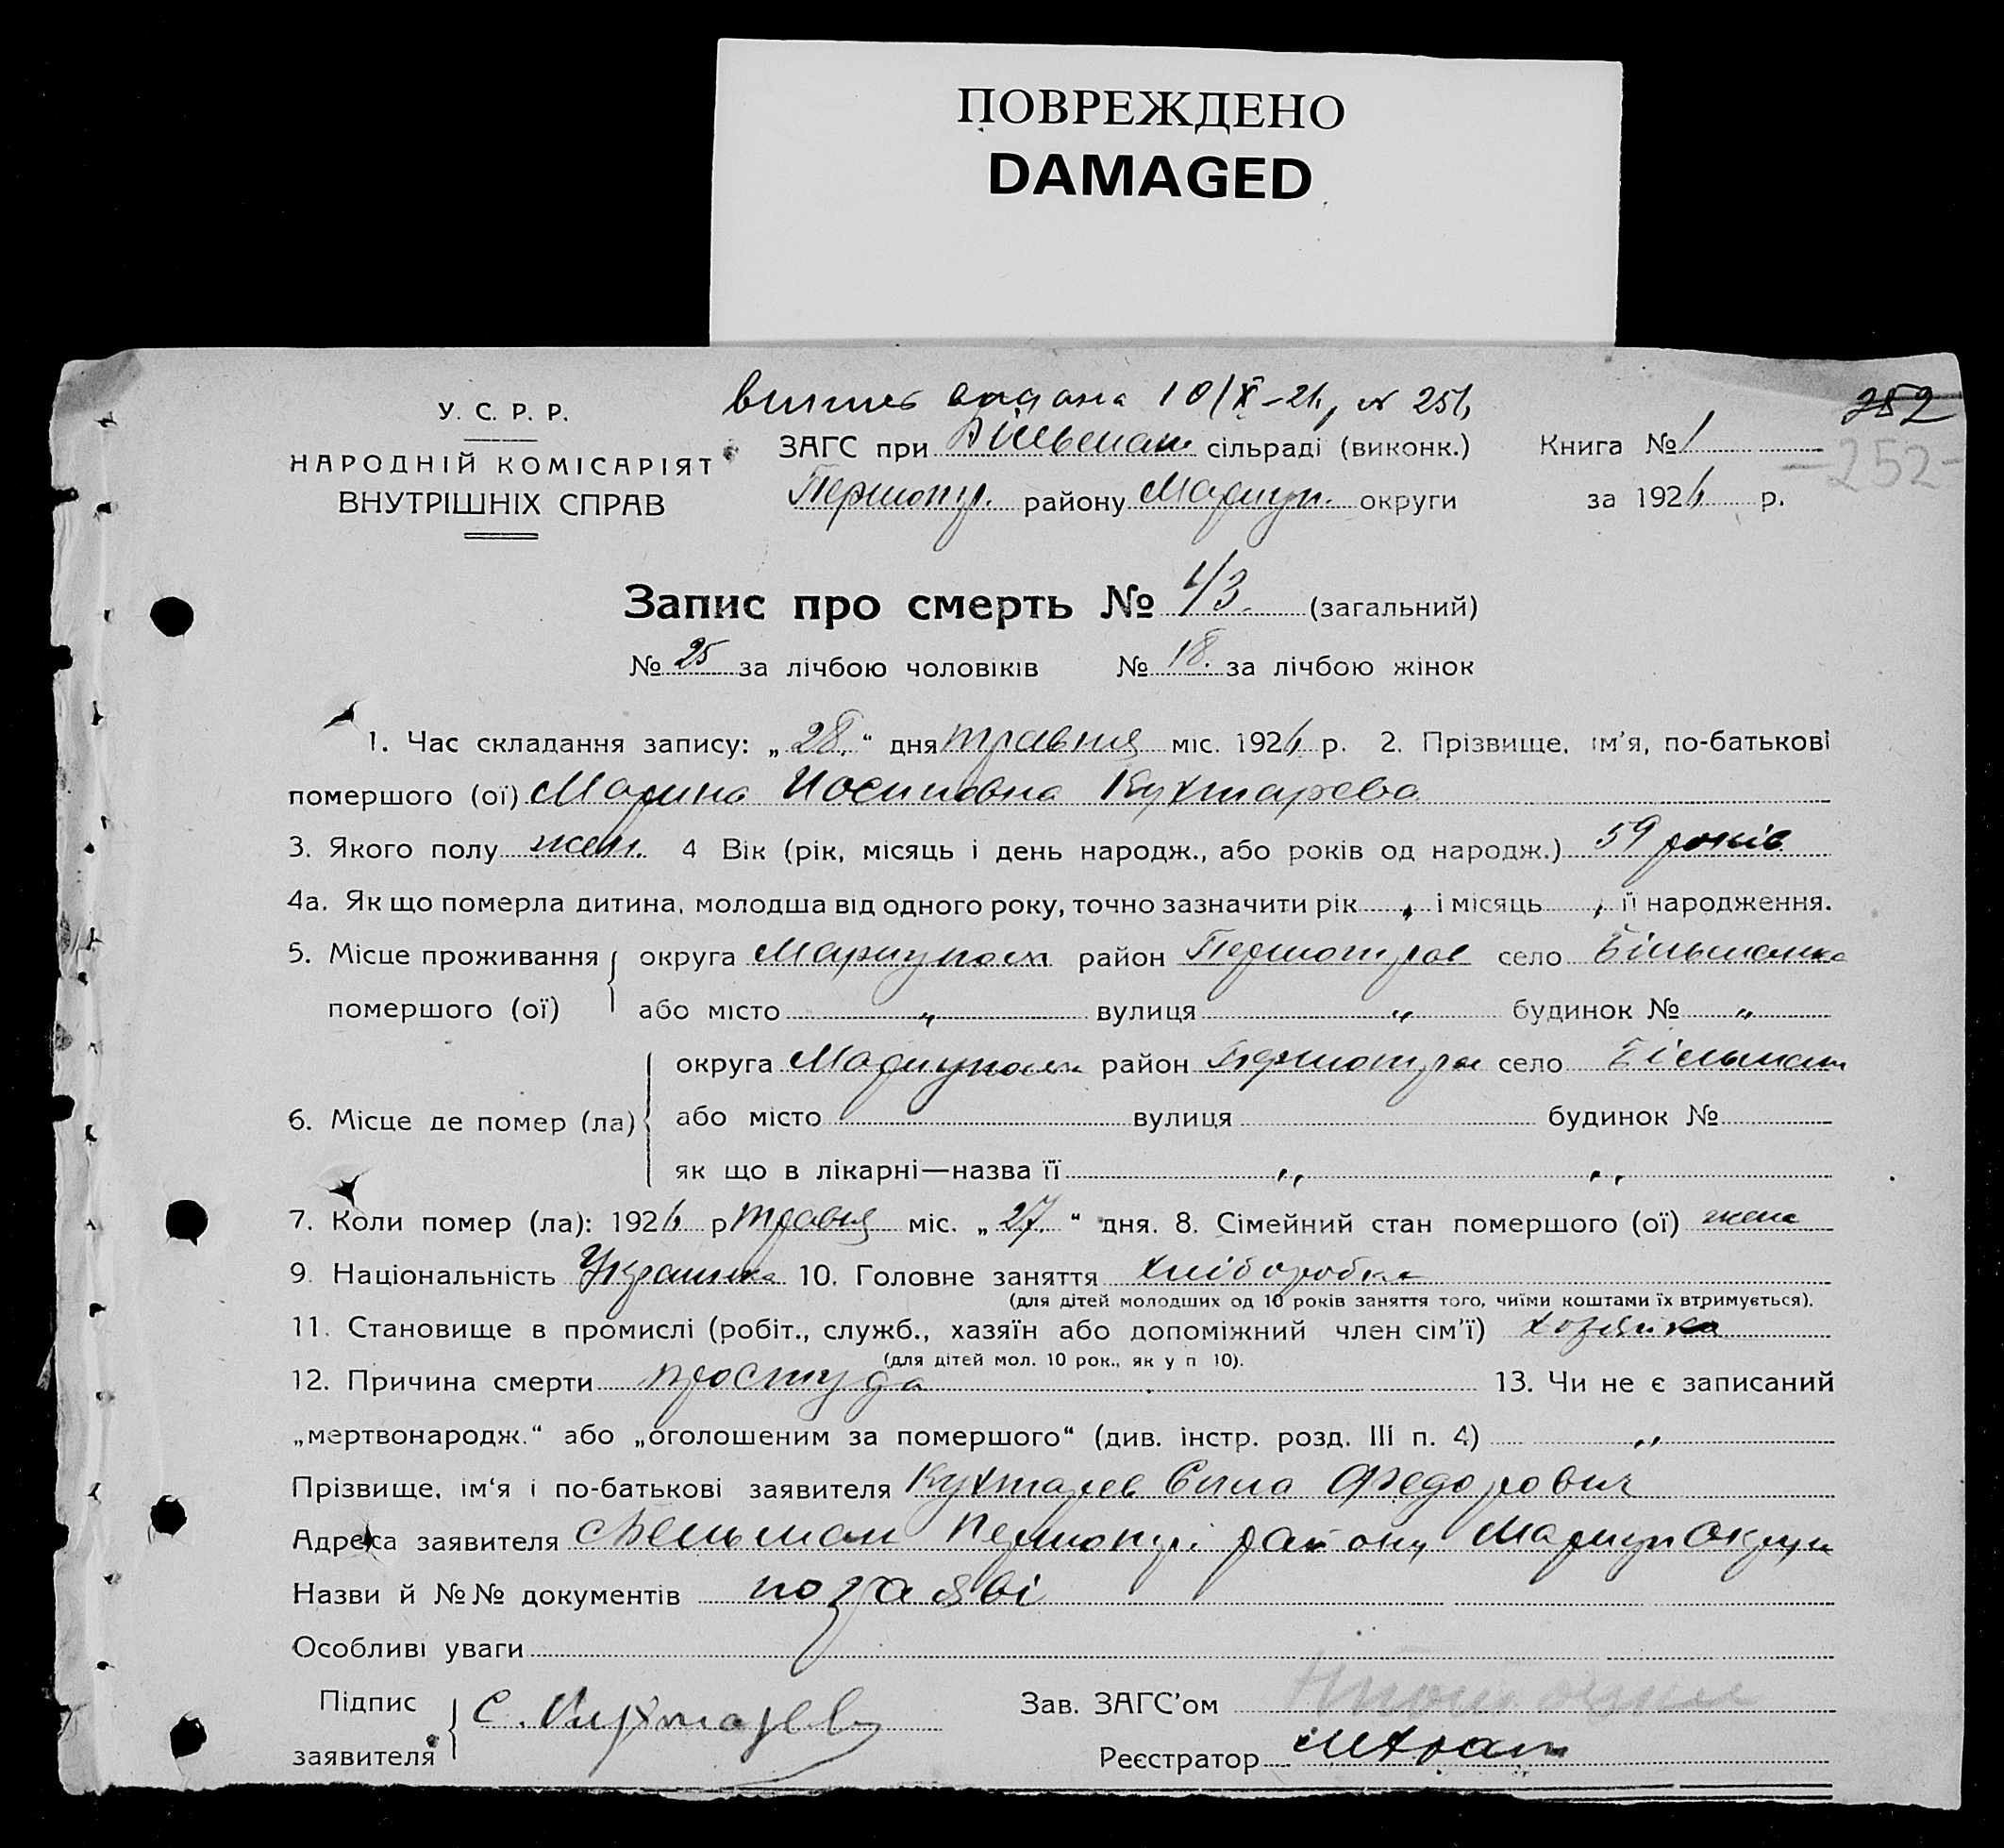 ПОВРЕЖДЕНО
DAMAGED
252
У. С. Р. Р.
НАРОДНІЙ КОМІСАРІЯТ
ВНУТРІШНІХ СПРАВ
видана 10/X-26, № 251,
ЗАГС при Більман сільраді (виконк.)
Першотр. району Маріуп. округи
Книга № 1
-252-
за 1926 р.
Запис про смерть № 43 (загальний)
№ 25 за лічбою чоловіків № 18. за лічбою жінок
1. Час складання запису: „28." дня травня міс. 1926 р. 2. Прізвище, ім'я, по-батькові
помершого (ої) Марина Иосиповна Кухтарева
3. Якого полу жен. 4 Вік (рік, місяць і день народж., або років од народж.) 59 років
4а. Як що померла дитина, молодша від одного року, точно зазначити рік , і місяць , її народження.
5. Місце проживання помершого (ої) округа Мариуполь район Першотрав село Більманка
або місто „ вулиця „ будинок № „
6. Місце де помер (ла) округа Мариуполь район Першотра село Більман
або місто вулиця будинок №
як що в лікарні—назва її „ „
7. Коли помер (ла): 1926 р травня міс. „27." дня. 8. Сімейний стан помершого (ої) жена
9. Національність Украинка 10. Головне заняття хліборобка
(для дітей молодших од 10 років заняття того, чиїми коштами їх втримується).
11. Становище в промислі (робіт., служб., хазяїн або допоміжний член сім'ї) хозяйка
(для дітей мол. 10 рок., як у п 10).
12. Причина смерти простуда 13. Чи не є записаний
„мертвонародж." або „оголошеним за помершого" (див. інстр. розд. III п. 4) „
Прізвище, ім'я і по-батькові заявителя Кухтарев Сила Федорович
Адреса заявителя с Бельман Першотр. району Мариуп округи
Назви й №№ документів по заяві
Особливі уваги
Підпис заявителя С. Кухтарев
Зав. ЗАГС'ом
Реєстратор